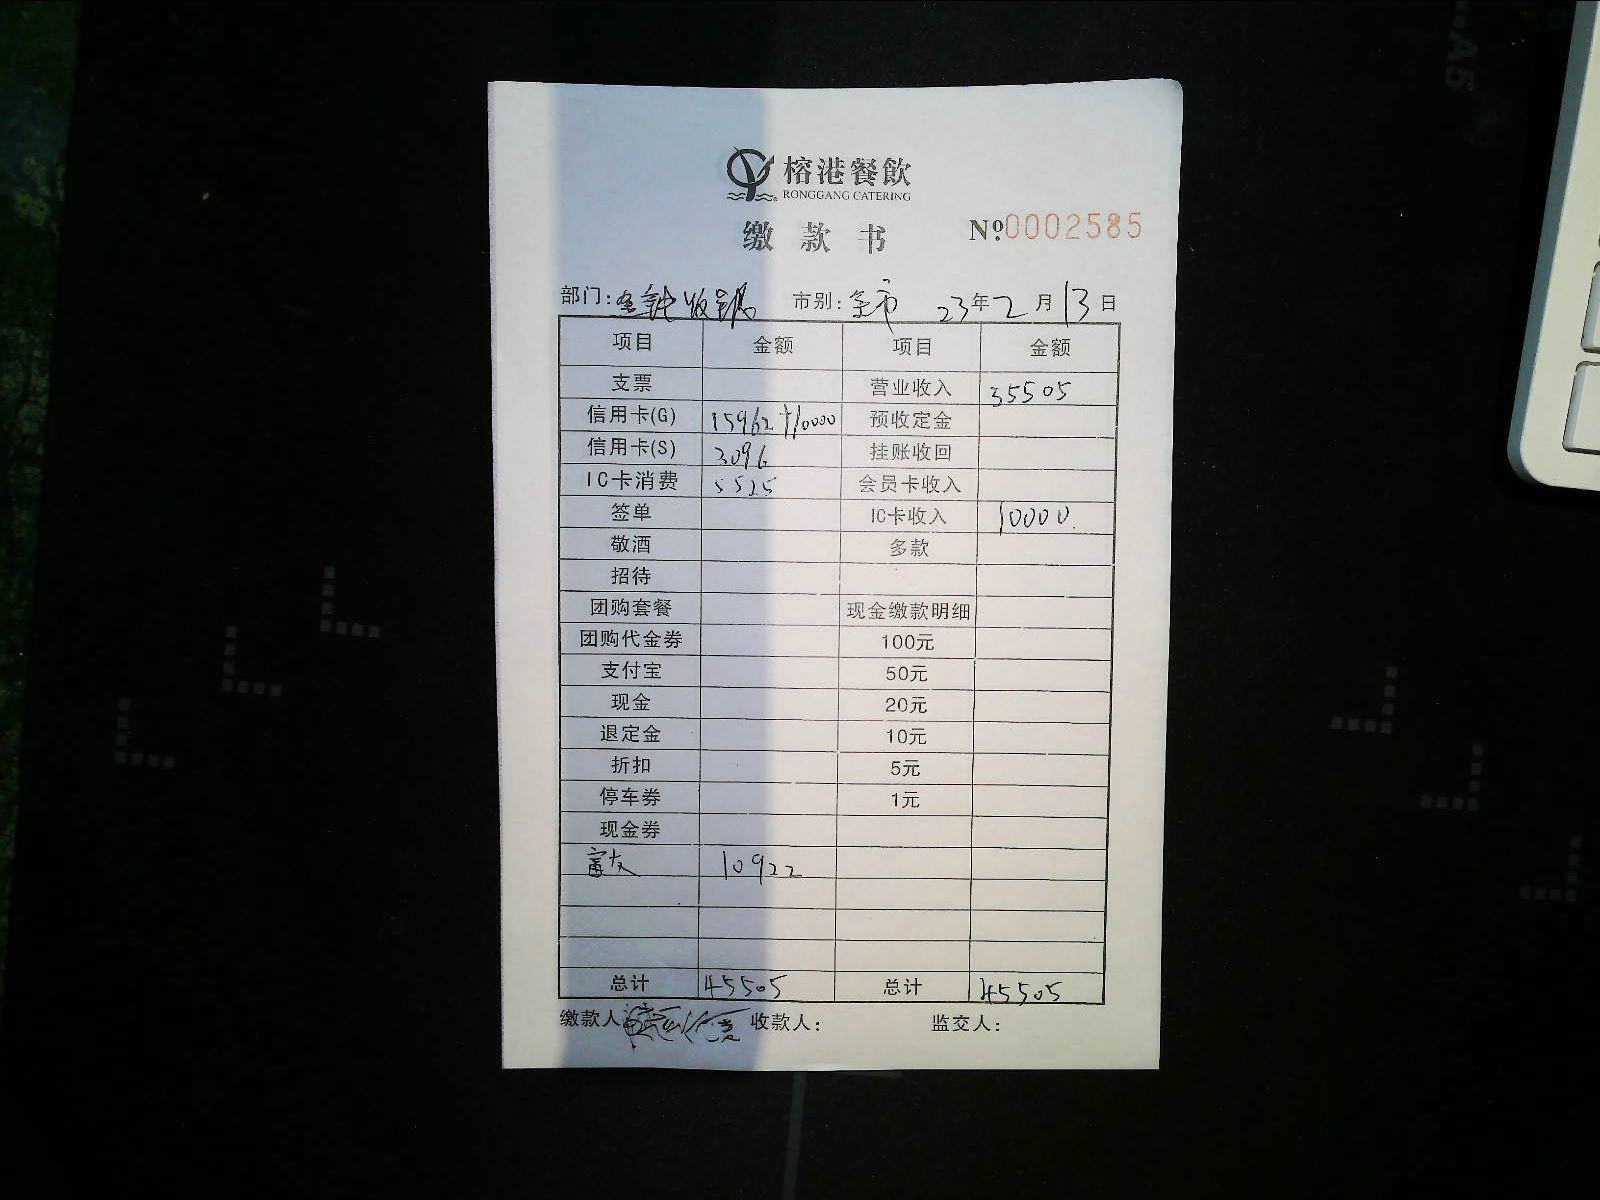 榕港餐飲
RONGGANG CATERING
缴款书 Nº:0002585
部门: 市别:全市 23年2月13日
项目 金额 项目 金额
支票 营业收入 35505
信用卡(G) 15962+10000 预收定金
信用卡(S) 3096 挂账收回
IC卡消费 5525 会员卡收入
签单 IC卡收入 10000.
敬酒 多款
招待
团购套餐 现金缴款明细
团购代金券 100元
支付宝 50元
现金 20元
退定金 10元
折扣 5元
停车券 1元
现金券
富友 10922
总计 45505 总计 45505
缴款人 收款人: 监交人: